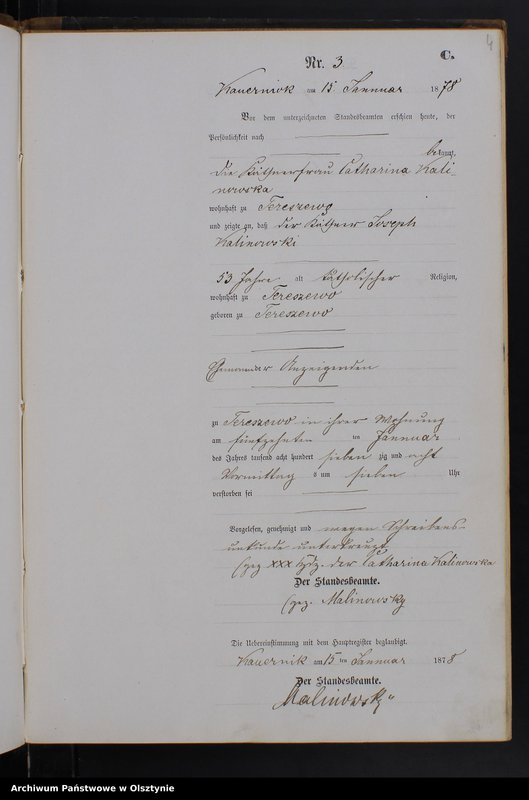 4
C.
Nr. 3
Kauernick am 15 Januar 1878
Vor dem unterzeichneten Standesbeamten erschien heute, der
Persönlichkeit nach
bekannt,
die Käthnerfrau Catharina Kali-
nowska
wohnhaft zu Tereszewo
und zeigte an, daß der Käthner Joseph
Kalinowski
53 Jahre alt katholischer Religion,
wohnhaft zu Tereszewo
geboren zu Tereszewo
Ehemann der Anzeigenden
zu Tereszewo in ihrer Wohnung
am fünfzehnten ten Januar
des Jahres tausend acht hundert sieben zig und acht
Vormittag s um sieben Uhr
verstorben sei
Vorgelesen, genehmigt und wegen Schreibens-
unkunde unterkreuzt
(gez xxx Hdz. der Catharina Kalinowska
Der Standesbeamte.
(gez. Malinowsky
Die Uebereinstimmung mit dem Hauptregister beglaubigt.
Kauernik am 15 ten Januar 1878
Der Standesbeamte.
Malinowsky
Archiwum Państwowe w Olsztynie